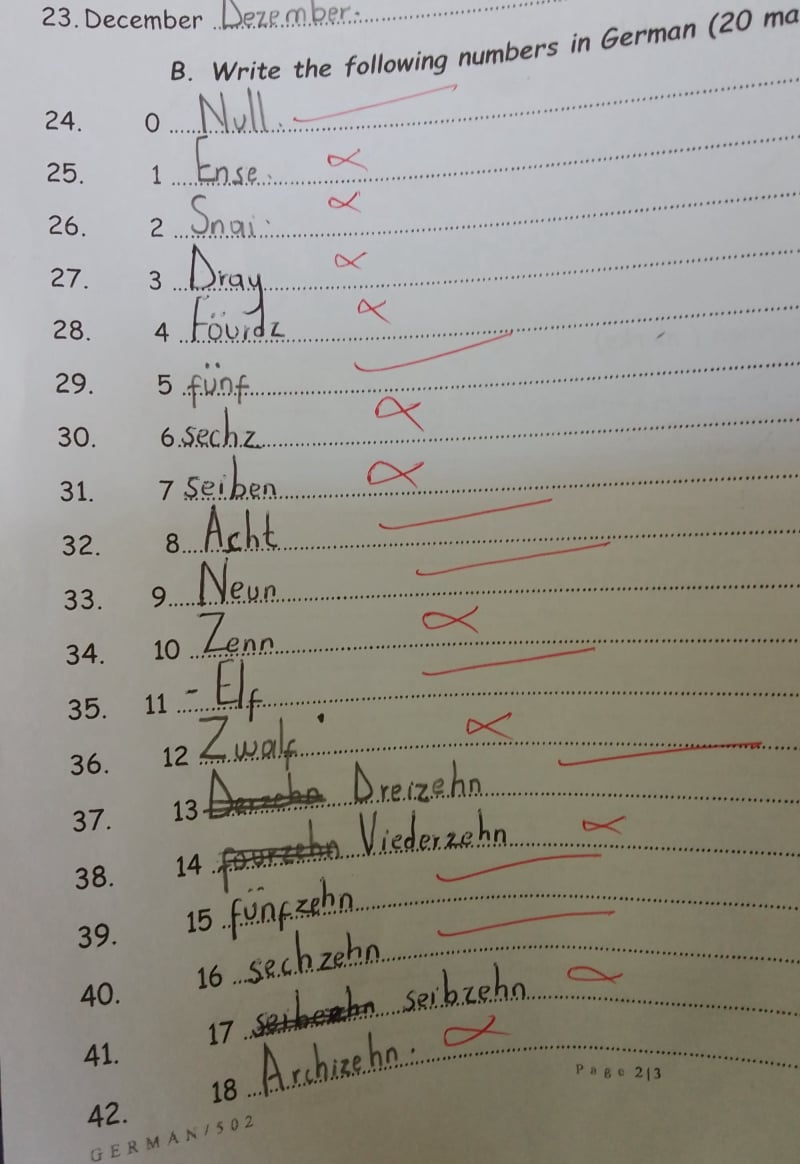 23. December Dezember.
B. Write the following numbers in German (20 ma
24. 0 Null.
25. 1 Ense.
26. 2 Snai.
27. 3 Dray
28. 4 Föürdz
29. 5 fünf
30. 6 sechz
31. 7 seiben
32. 8 Acht
33. 9 Neun
34. 10 Zenn
35. 11 - Elf
36. 12 Zwalf
37. 13 Derzehn Dreizehn
38. 14 fourzehn Viederzehn
39. 15 fünfzehn
40. 16 sechzehn
41. 17 seibezhn seibzehn
42. 18 Archizehn.
Page 2|3
GERMAN/502